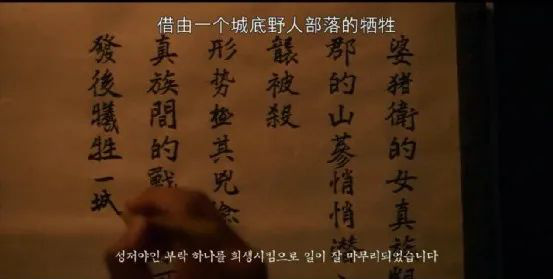 借由一个城底野人部落的牺牲
婆猪衛的女真族
郡的山蔘悄悄潛
襲被殺
形势極其兇險
真族間的戰
發後犧牲一城
성저야인 부락 하나를 희생시킴으로 일이 잘 마무리되었습니다